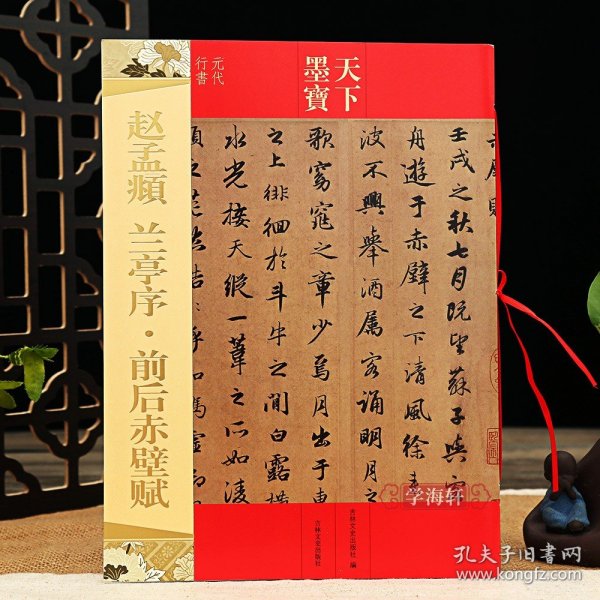 天下
墨寶
元代
行書
赵孟頫 兰亭序·前后赤壁赋
壬戌之秋七月既望蘇子與客
舟遊于赤壁之下清風徐来
波不興舉酒属客誦明月之
歌窈窕之章少焉月出于東
之上徘徊於斗牛之間白露横
水光接天縱一葦之所如淩
吉林文史出版社 编
吉林文史出版社
学海轩
孔夫子旧书网
www.kongfz.com